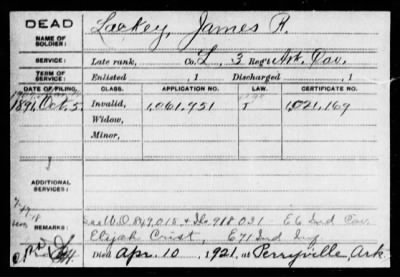 DEAD
NAME OF SOLDIER: Lackey, James R.
SERVICE: Late rank, Co. L, 3 Reg't Ark. Cav.
TERM OF SERVICE: Enlisted , 1 Discharged , 1
DATE OF FILING. CLASS. APPLICATION NO. LAW. CERTIFICATE NO.
1891, Oct. 5 Invalid, 1,061,951 1,021,169
Widow,
Minor,
ADDITIONAL SERVICES:
REMARKS: W.O. 849,015 + 918,031 - E 6 Ind Cav
Elijah Crist, E 71 Ind Inf
Died Apr. 10, 1921, at Perryville, Ark